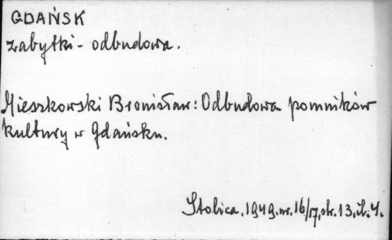 GDAŃSK
zabytki - odbudowa.
Mieszkowski Bronisław: Odbudowa pomników
kultury w Gdańsku.
Stolica. 1949. nr. 16/17, str. 13, il. 4.